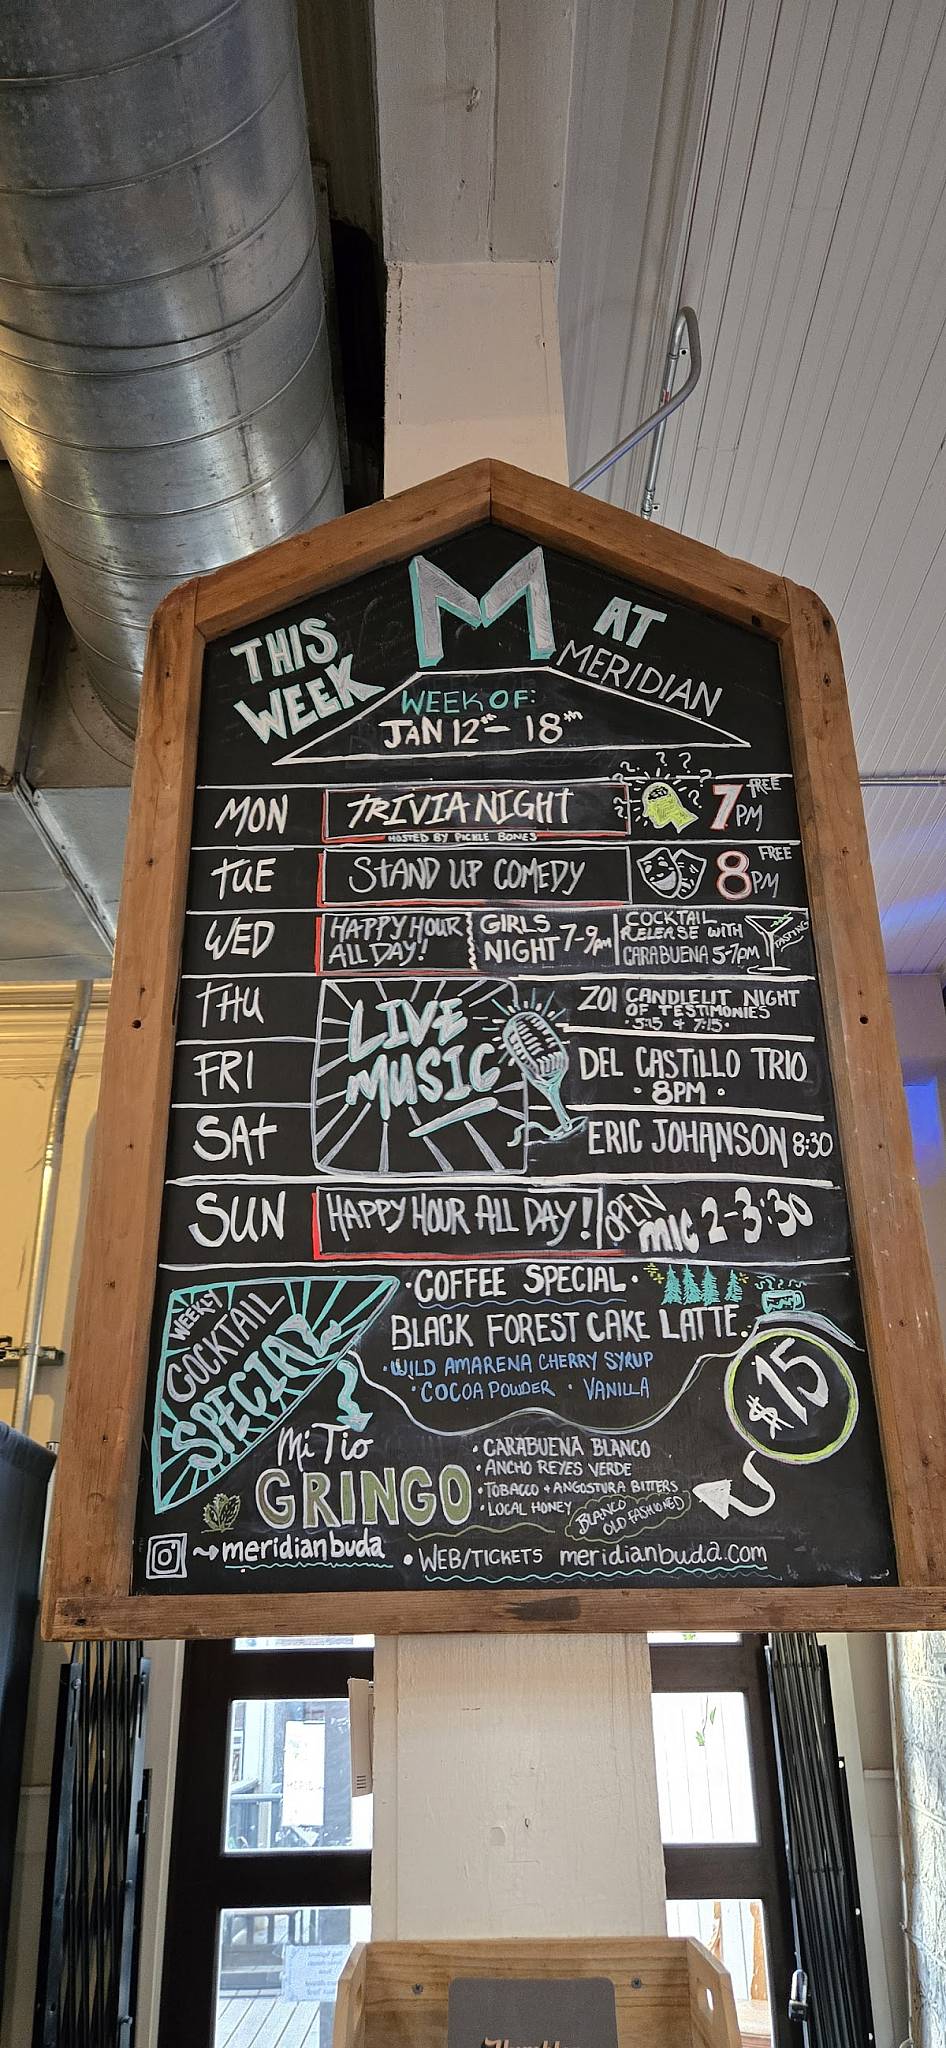 M
THIS WEEK
AT MERIDIAN
WEEK OF:
JAN 12th - 18th
MON TRIVIA NIGHT 7PM FREE
HOSTED BY PICKLE BONES
TUE STAND UP COMEDY 8PM FREE
WED HAPPY HOUR ALL DAY! GIRLS NIGHT 7-9pm COCKTAIL RELEASE WITH CARABUENA 5-7pm TASTING
LIVE MUSIC
THU ZOI CANDLELIT NIGHT OF TESTIMONIES
• 5:15 & 7:15 •
FRI DEL CASTILLO TRIO
• 8PM •
SAT ERIC JOHANSON 8:30
SUN HAPPY HOUR ALL DAY! OPEN MIC 2-3:30
• COFFEE SPECIAL •
BLACK FOREST CAKE LATTE
• WILD AMARENA CHERRY SYRUP
• COCOA POWDER • VANILLA
WEEKLY
COCKTAIL
SPECIAL
$15
Mi Tio
GRINGO
• CARABUENA BLANCO
• ANCHO REYES VERDE
• TOBACCO + ANGOSTURA BITTERS
• LOCAL HONEY
BLANCO OLD FASHIONED
meridianbuda • WEB/TICKETS meridianbuda.com